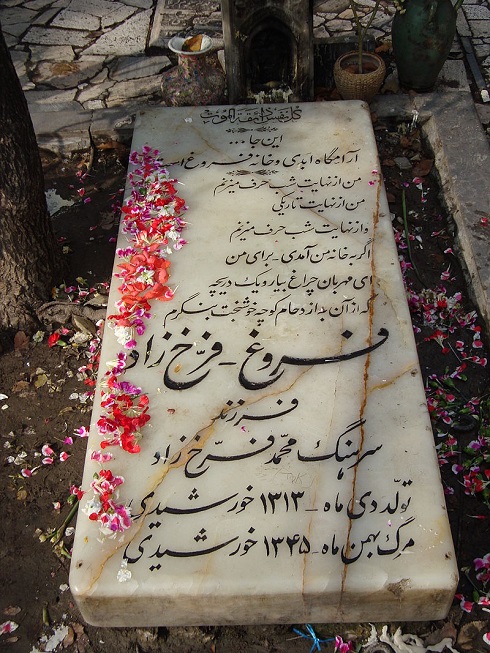 كُلُّ نَفْسٍ ذَائِقَةُ الْمَوْتِ
این جا ...
آرامگاه ابدی و خانه فروغ است
من از نهایت شب حرف میزنم
من از نهایت تاریکی
و از نهایت شب حرف میزنم
اگر به خانه من آمدی - برای من
ای مهربان چراغ بیار و یک دریچه
که از آن به ازدحام کوچه خوشبخت بنگرم
فروغ - فرّخ زاد
فرزند
سرهنگ محمّد فرّخ زاد
تولّد دی ماه - ۱۳۱۳ خورشیدی
مرگ بهمن ماه - ۱۳۴۵ خورشیدی